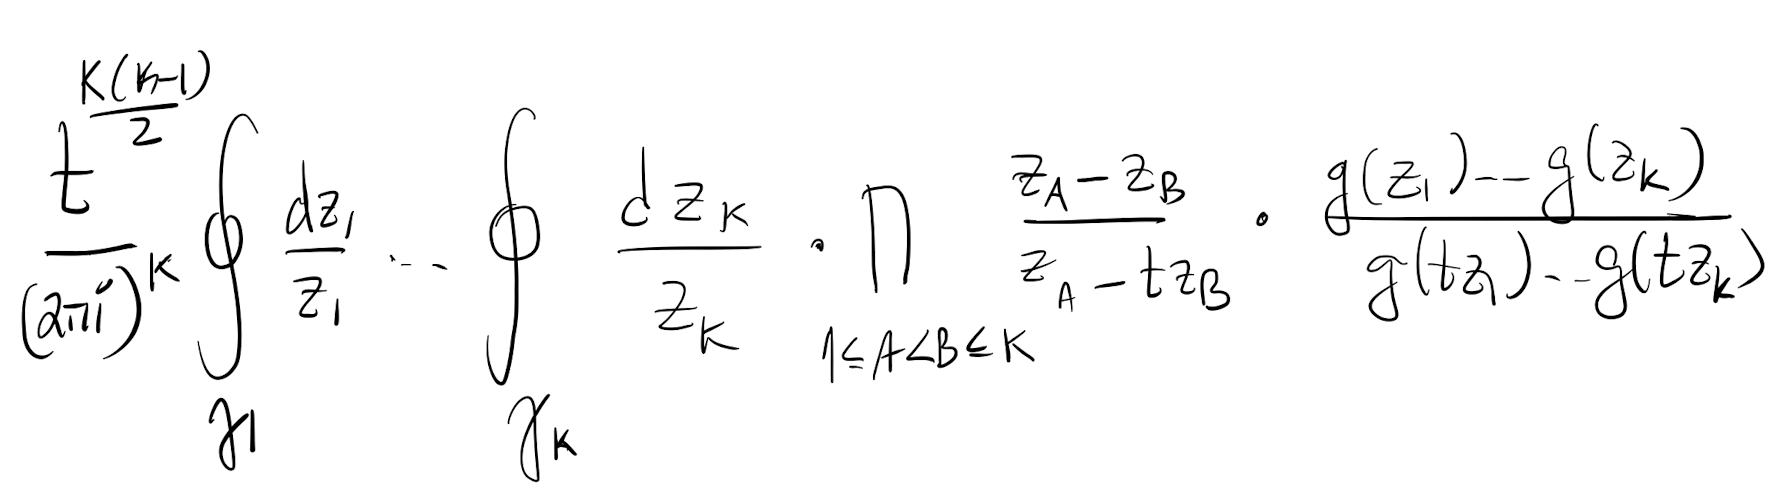 \frac{t^{\frac{K(K-1)}{2}}}{(2\pi i)^K} \oint_{\gamma_1} \frac{dz_1}{z_1} \cdots \oint_{\gamma_K} \frac{dz_K}{z_K} \cdot \prod_{1 \leq A < B \leq K} \frac{z_A - z_B}{z_A - t z_B} \cdot \frac{g(z_1) \cdots g(z_K)}{g(tz_1) \cdots g(tz_K)}